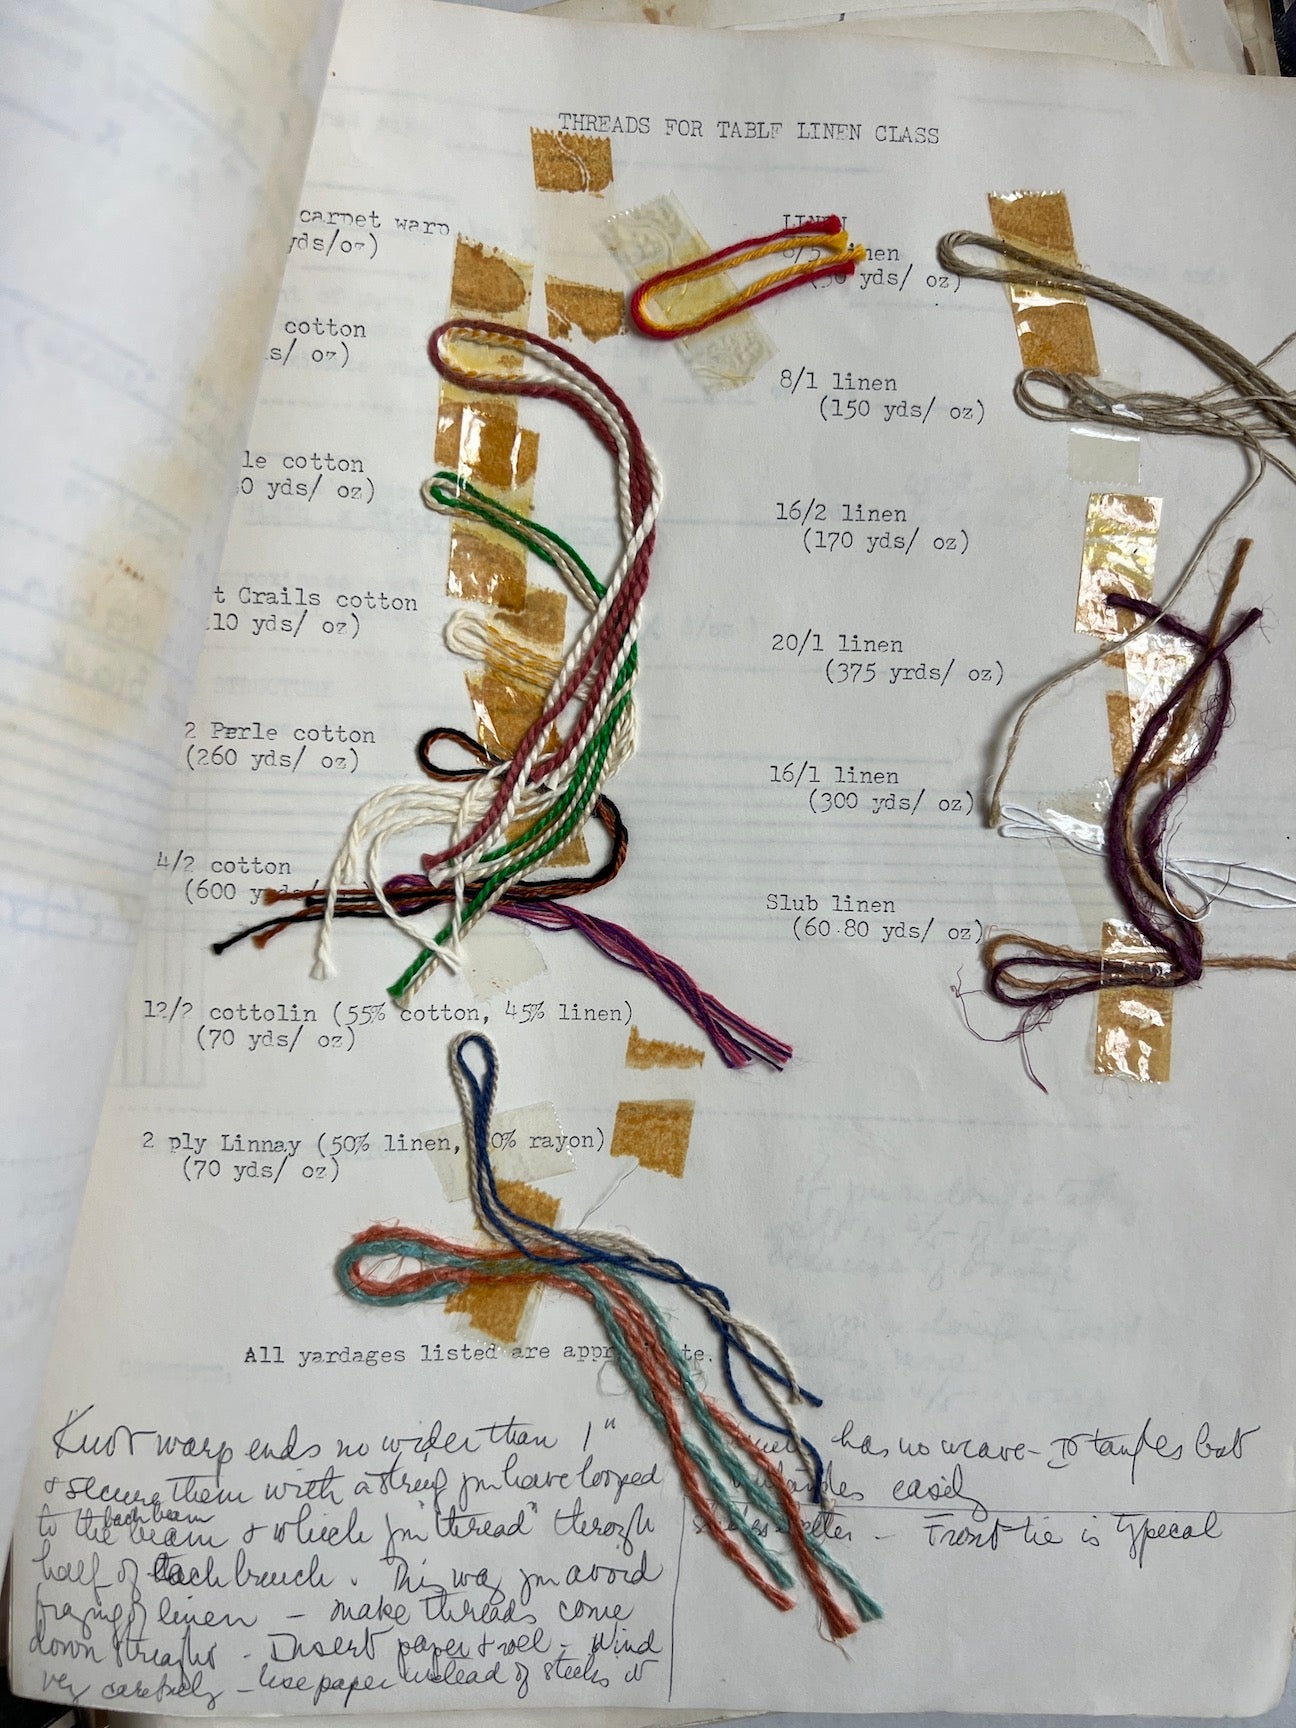 THREADS FOR TABLE LINEN CLASS
carpet warp
yds/oz)
cotton
s/ oz)
le cotton
0 yds/ oz)
t Crails cotton
10 yds/ oz)
2 Perle cotton
(260 yds/ oz)
4/2 cotton
(600 yds/
12/2 cottolin (55% cotton, 45% linen)
(70 yds/ oz)
2 ply Linnay (50% linen, 0% rayon)
(70 yds/ oz)
LINEN
8/5 linen
(50 yds/ oz)
8/1 linen
(150 yds/ oz)
16/2 linen
(170 yds/ oz)
20/1 linen
(375 yrds/ oz)
16/1 linen
(300 yds/ oz)
Slub linen
(60-80 yds/ oz)
All yardages listed are appr te.
Knot warp ends no wider than 1"
& secure them with a string you have looped
back beam
to the beam & which you "thread" through
half of each bunch. This way you avoid
fraying of linen - make threads come
down straight. Insert paper & roll - Wind
very carefully - use paper instead of sticks
has no weave - tangles but
easily
- Front tie is typical